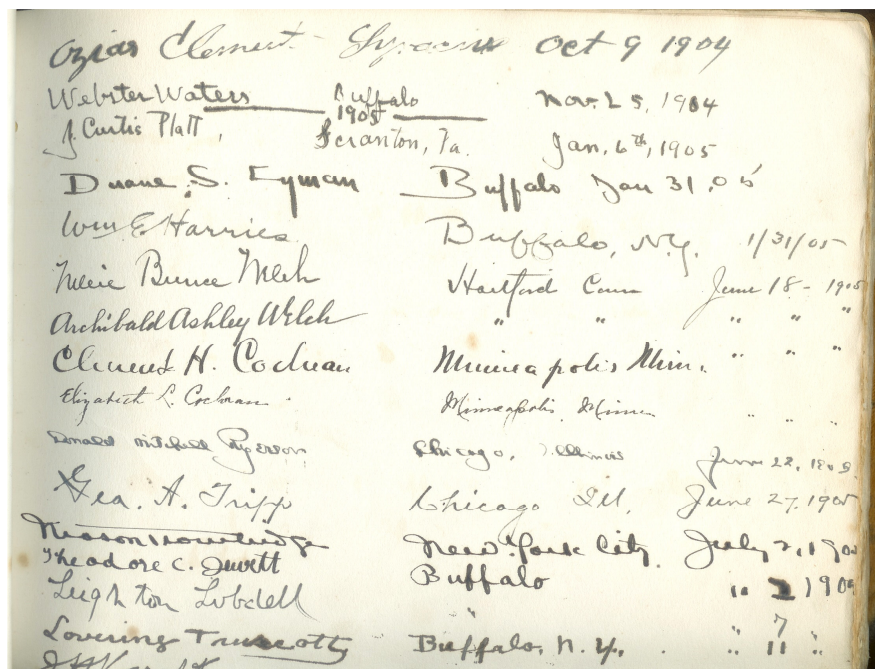 Ozias Clement Syracuse Oct 9 1904
Webster Waters Buffalo Nov. 25, 1904
1905
J. Curtis Platt, Scranton, Pa. Jan. 6th, 1905
Duane S. Lyman Buffalo Jan 31, 05
Wm E Harries Buffalo, N.Y. 1/31/05
Bunce Welch Hartford Conn June 18 - 1905
Archibald Ashley Welch " " " " "
H. Cochran Minneapolis Minn. " " "
Elizabeth L. Cochran Minneapolis Minn " " "
Donald Mitchell Ryerson Chicago, Illinois June 22, 1905
Geo. A. Tripp Chicago Ill, June 27, 1905
New York City July 2, 1905
Theodore C. Jewett Buffalo " 2 1905
Leighton Lobdell " " 7
Lovering Truscott Buffalo, N.Y. " 11 "